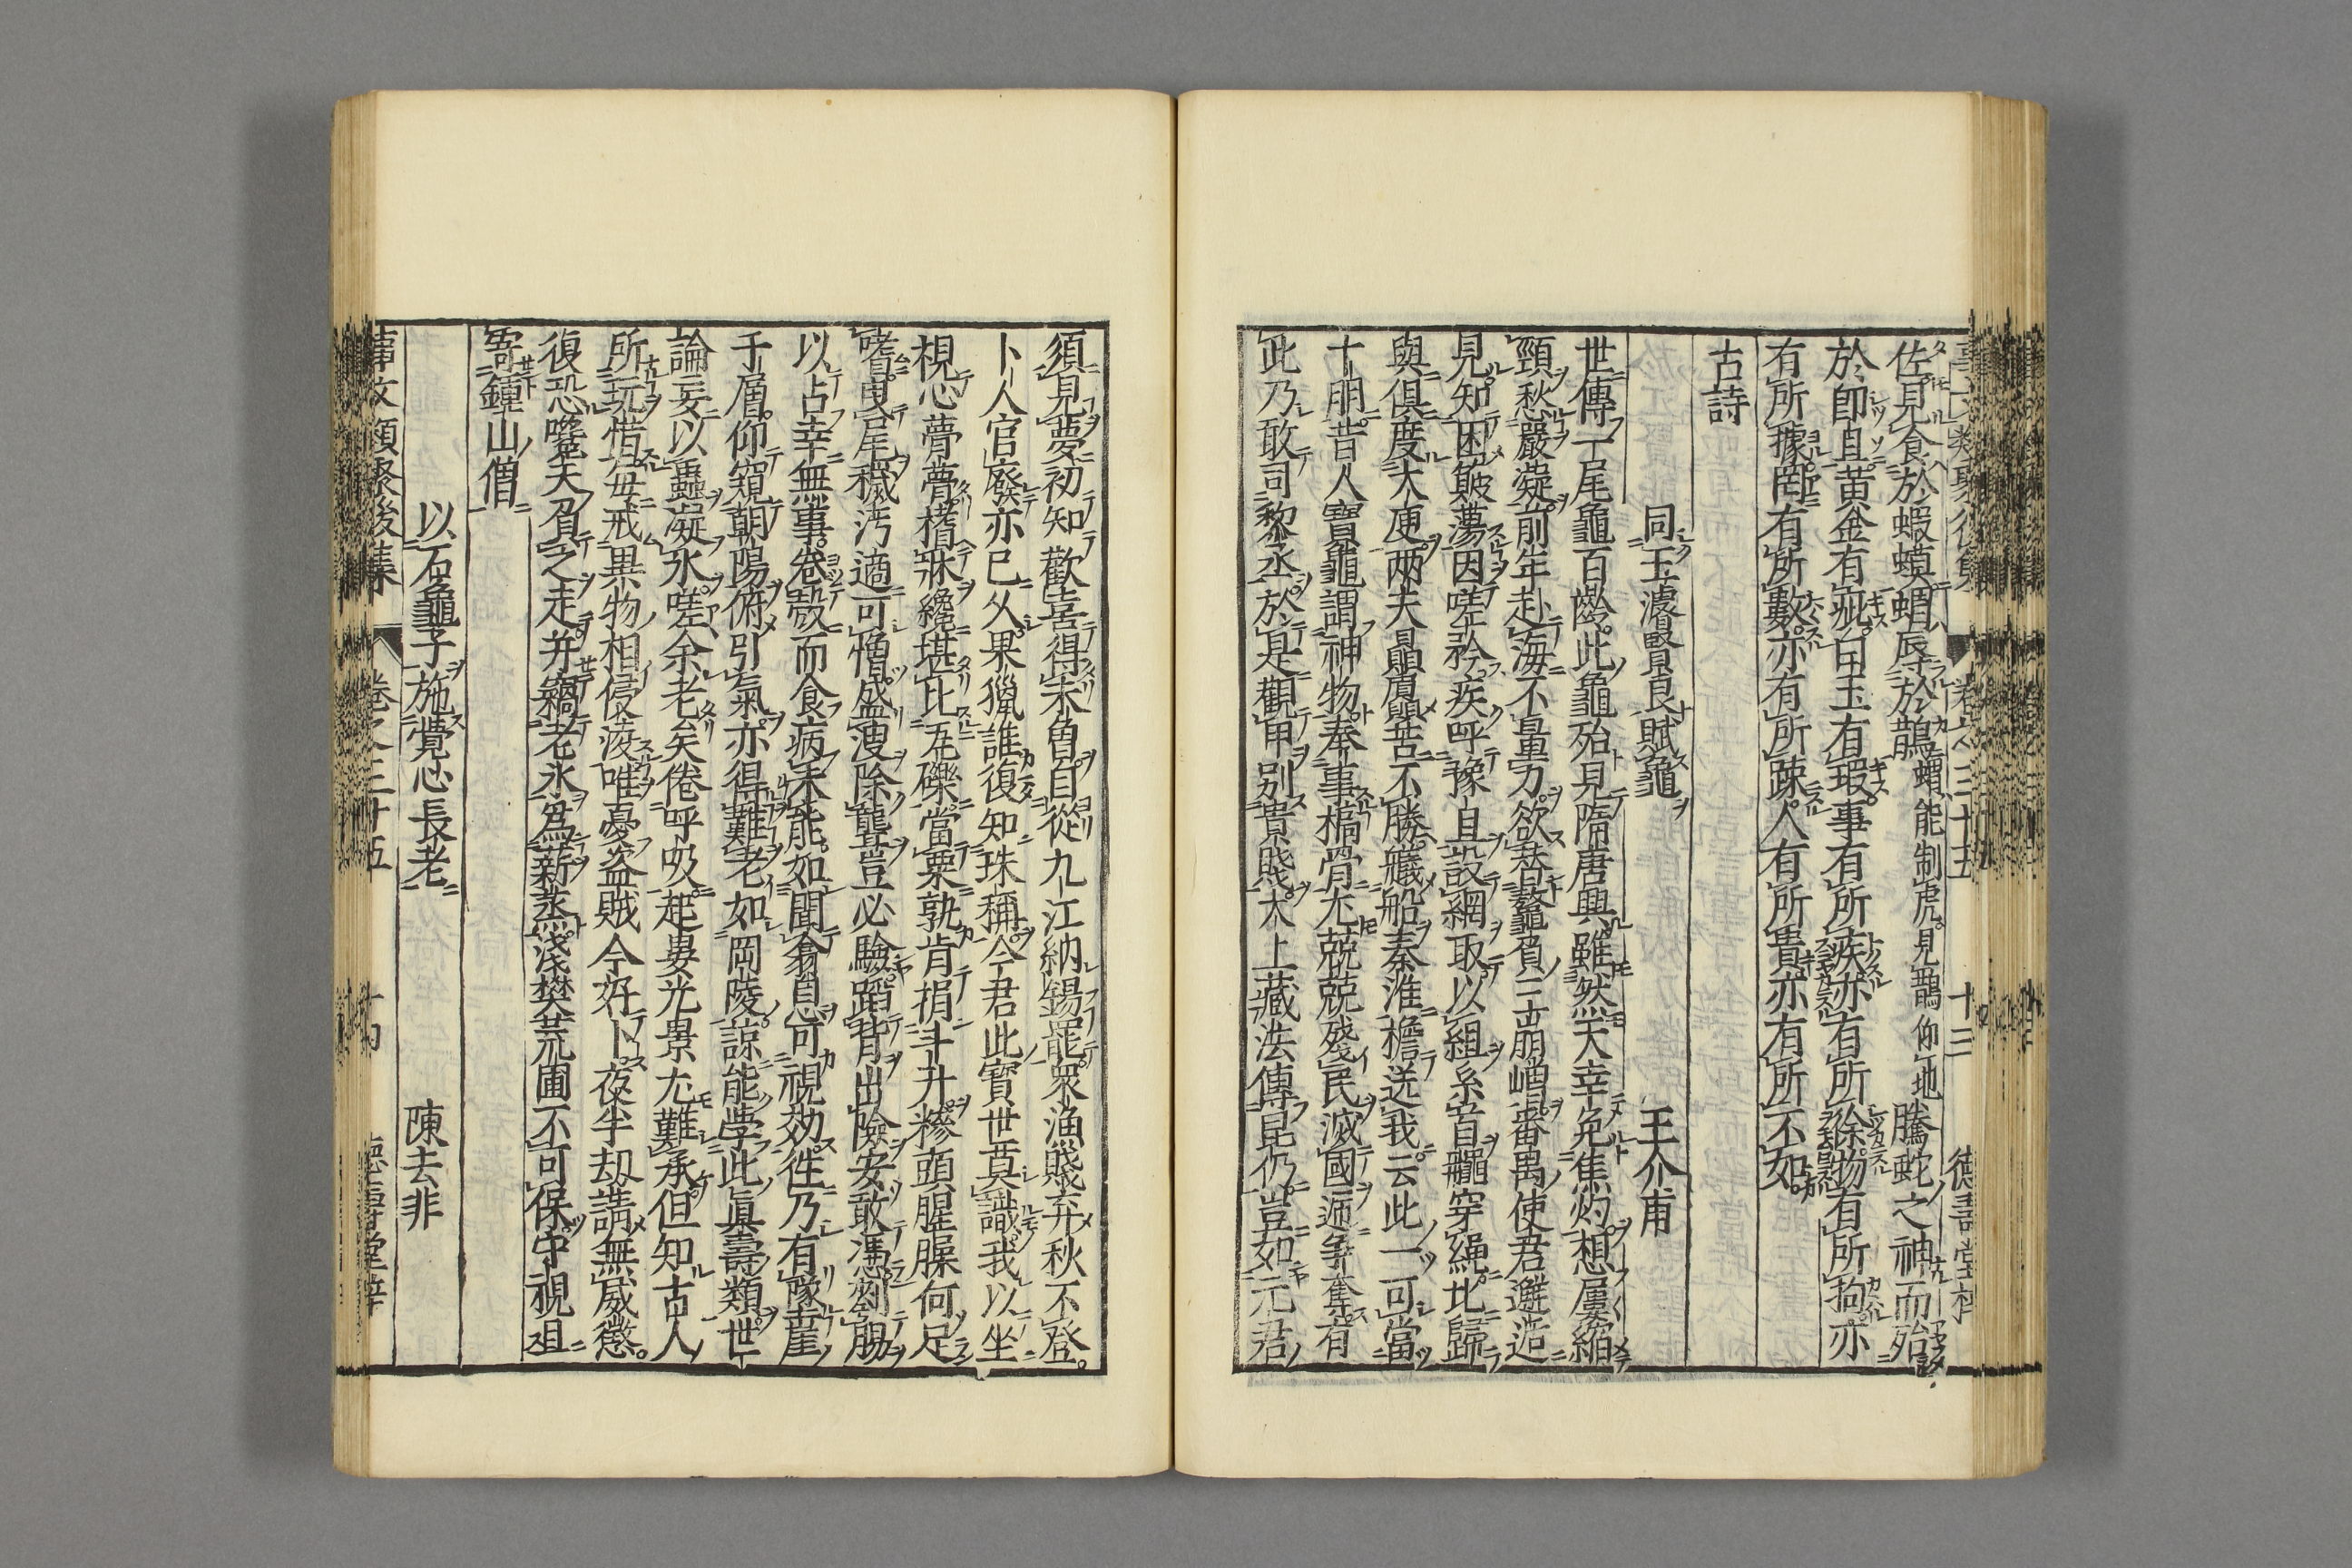 佐見食於蝦蟆蝟辱於鵲蝟能制虎見鵲仰地騰蛇之神而殆
於卽且黄金有疵白玉有瑕事有所疾亦有所徐物有所拘亦
有所據罔有所數亦有所疎人有所貴亦有所不如
古詩
同王濬賢良賦龜 王介甫
世傳一尾龜百齡此龜殆見隋唐興雖然天幸免焦灼想屢縮
頸愁嚴凝前年赴海不量力欲替鼇負三崩嶒番禺使君邂逅
見知困簸蕩因嗟矜疾呼豫且設網取以組糸首艫穿繩北歸
與俱度大庾兩夫贔屭苦不勝艤船秦淮檐送我云此一可當
十朋昔人寶龜謂神物奉事槁骨尤兢兢殘民滅國遞爭奪有
此乃敢司黎烝於是觀甲别貴賤太上藏法傳昆仍豈如元君
須見夢初知歡喜得未曾自從九江納錫罷衆漁賤弃秋不登
卜人官廢亦已久果獵誰復知珠稱今君此寶世莫識我以坐
視心瞢瞢楮牀纔堪比瓦礫當粟孰肯捐斗升糝頭腥臊何足
嗜曳尾穢污適可憎盛溲除聾豈必驗蹈背出險安敢憑刳腸
以占幸無事卷殼而食病未能如聞翕息可視効徃乃有隊崖
于層仰窺朝陽俯引氣亦得難老如岡陵諒能學此眞壽類世
論妄以蟲凝氷嗟余老矣倦呼吸起晏光景尤難承但知古人
所玩惜每戒異物相侵凌唯憂盗賊今好卜夜半刼請無威懲
復恐嚵夫負之走并竊老氷爲薪蒸淺樊荒圃不可保守視且
寄鍾山僧
以石龜子施覺心長老 陳去非
事文類聚後集 卷之三十五